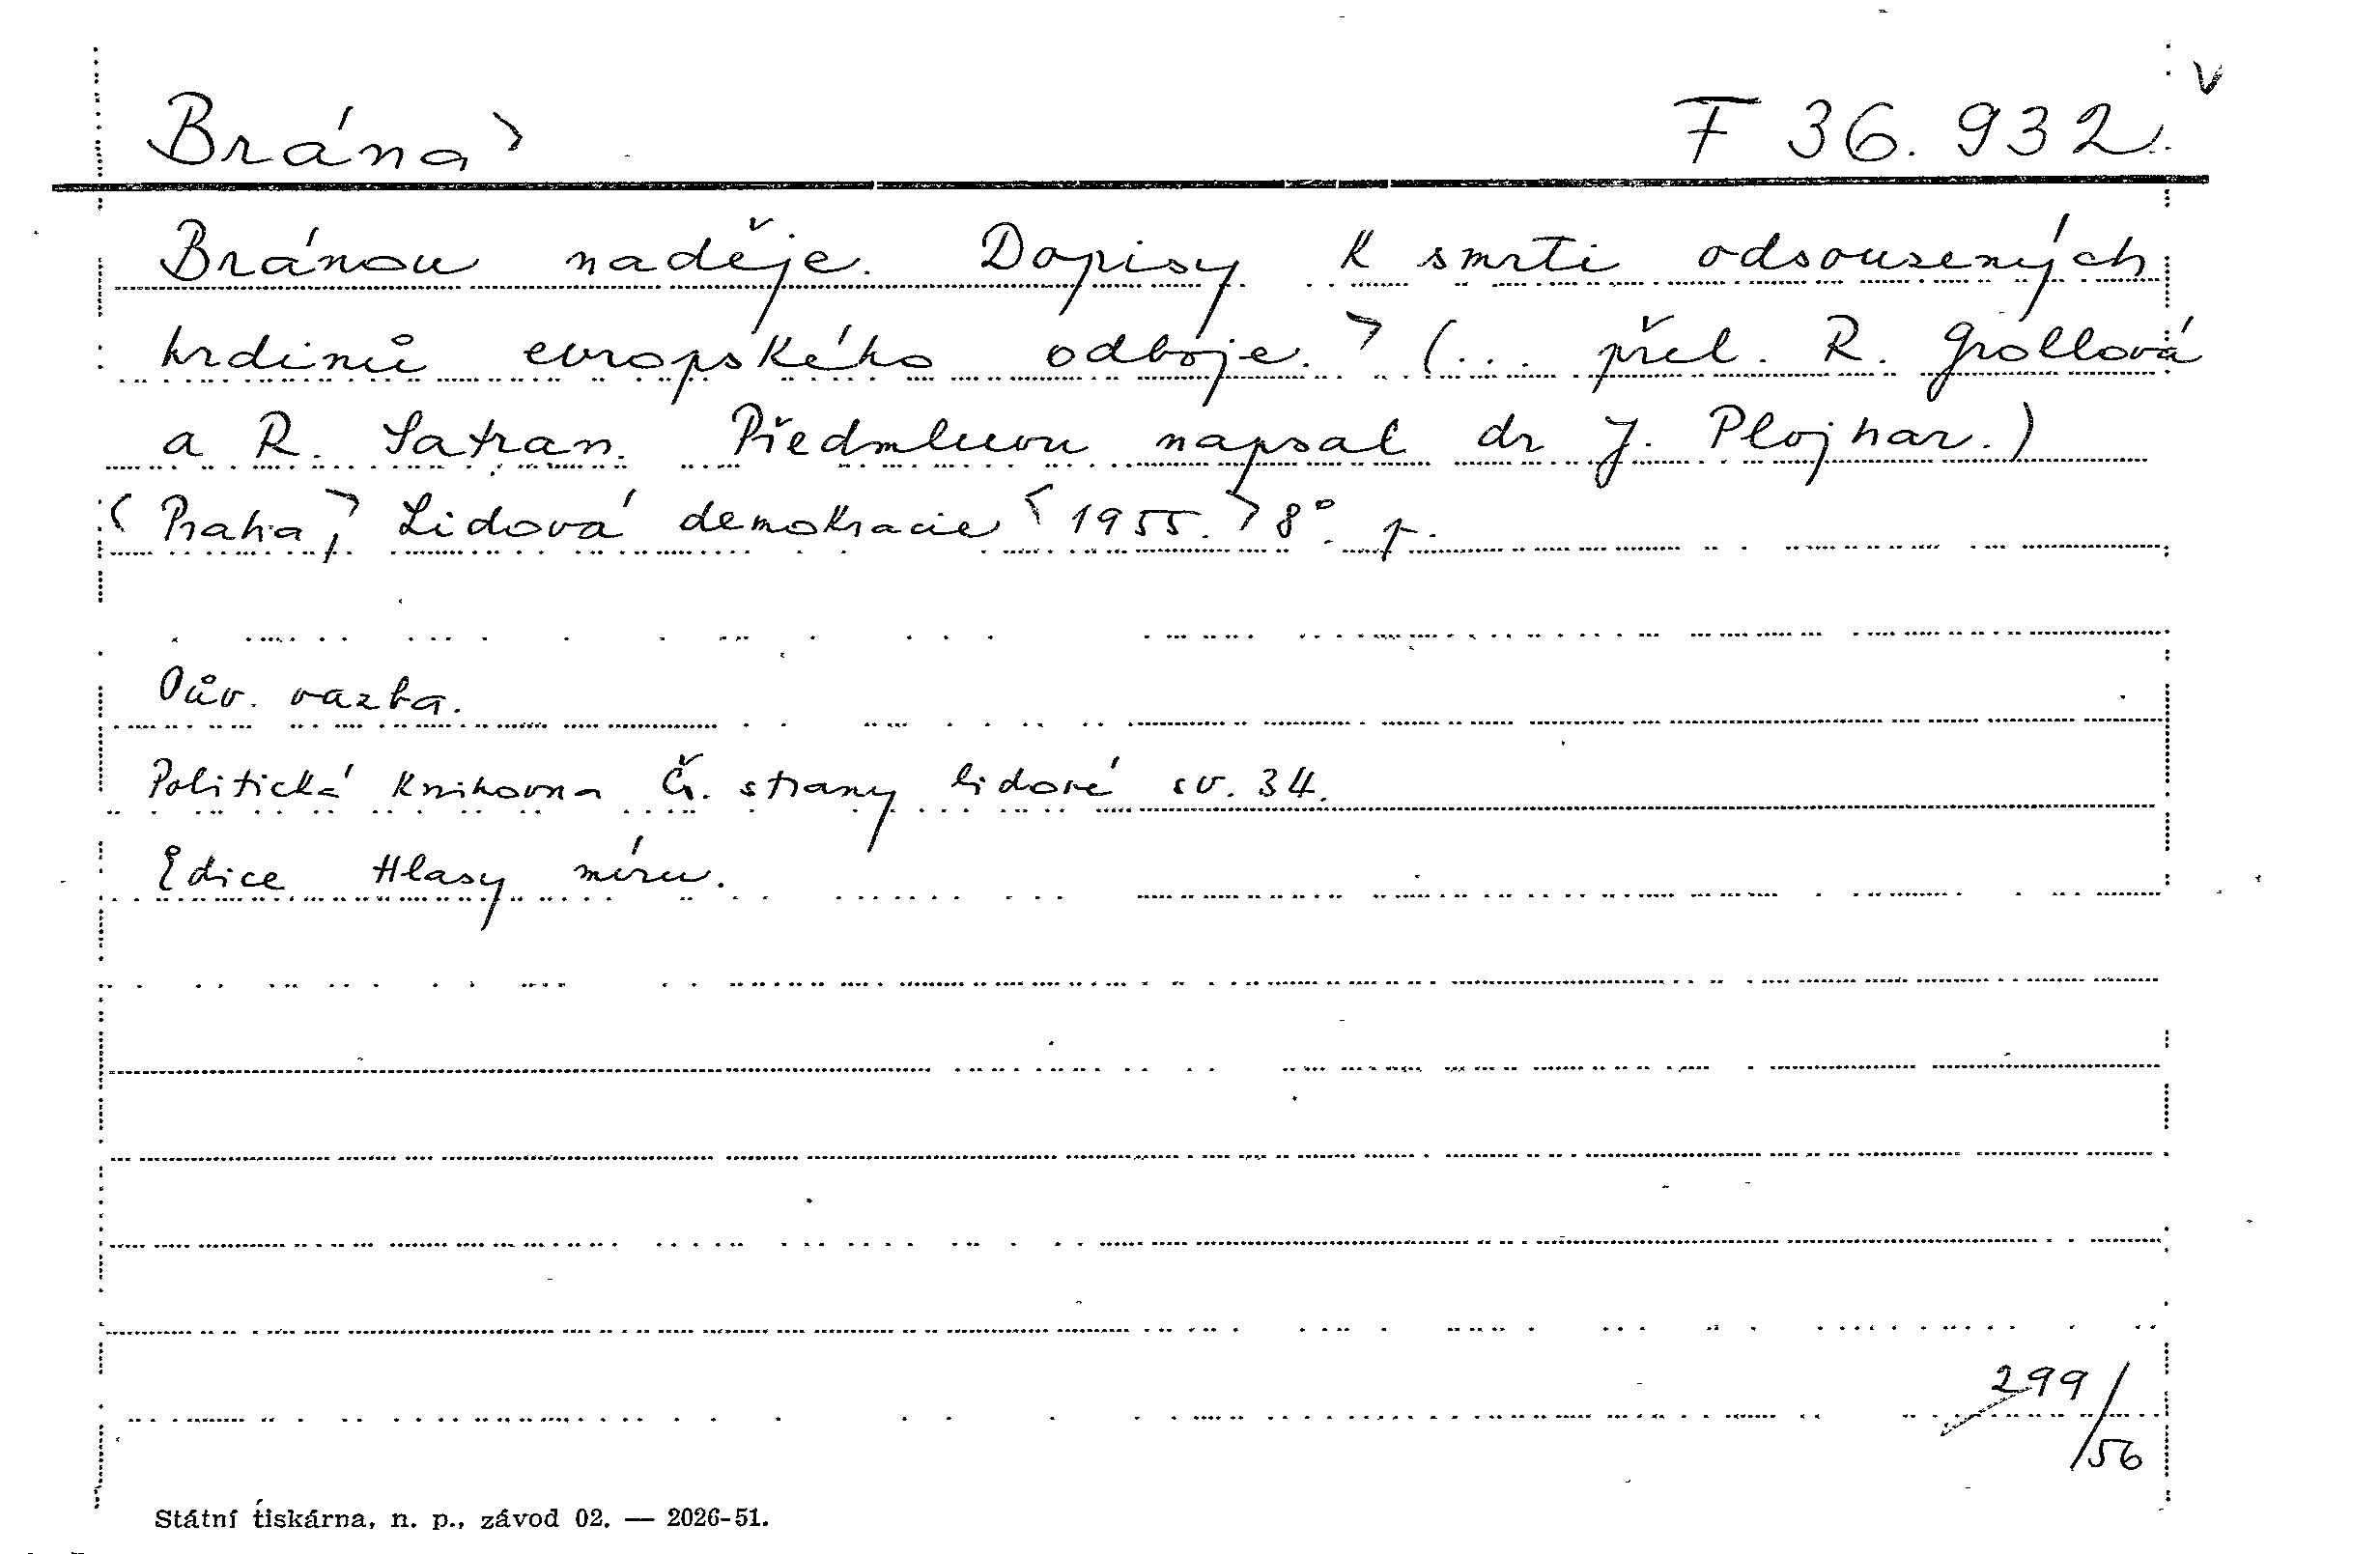 Brána> F 36.932. v
Bránou naděje. Dopisy k smrti odsouzených
hrdinů evropského odboje.> (... přel. R. Grollová
a R. Satran. Předmluvu napsal dr J. Plojhar.)
<Praha,> Lidová demokracie <1955.> 8°. p.
Pův. vazba.
Politická knihovna Čs. strany lidové sv. 34.
Edice Hlasy míru.
299/
56
Státní tiskárna, n. p., závod 02. — 2026-51.